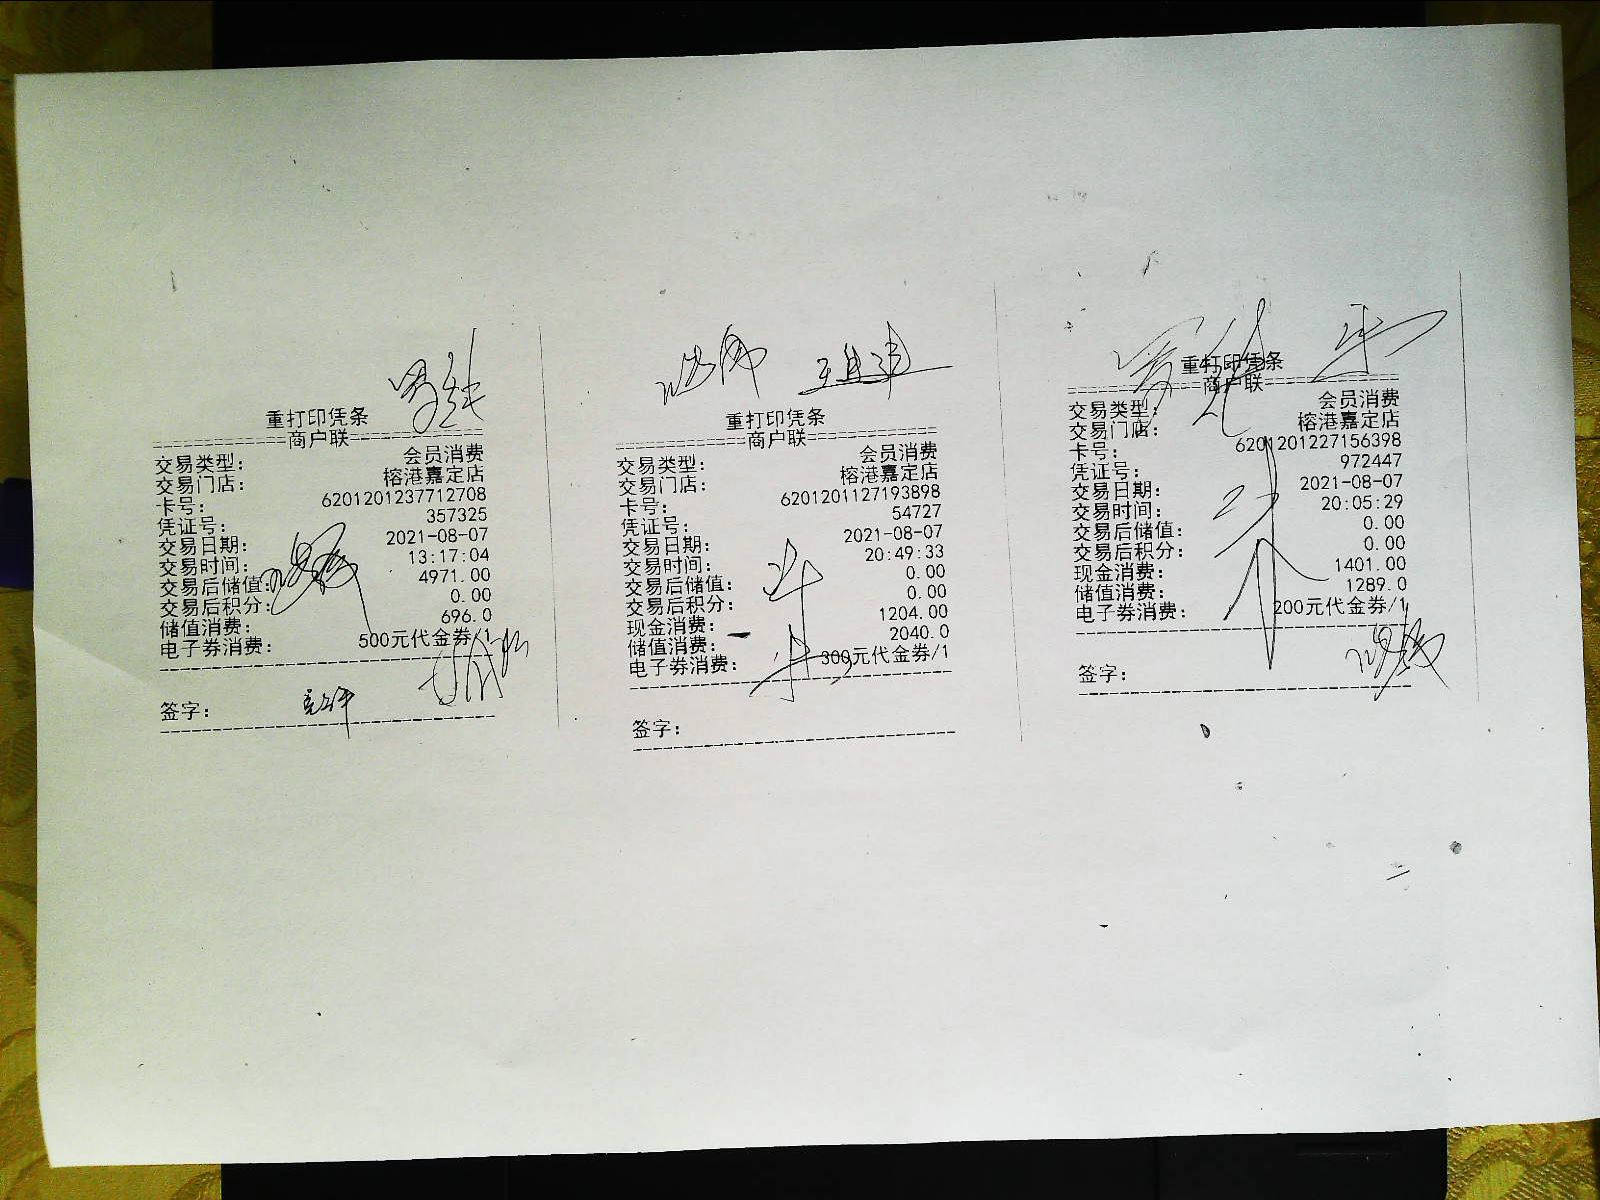 重打印凭条
==============商户联==============
交易类型： 会员消费
交易门店： 榕港嘉定店
卡号： 6201201237712708
凭证号： 357325
交易日期： 2021-08-07
交易时间： 13:17:04
交易后储值： 4971.00
交易后积分： 0.00
储值消费： 696.0
电子券消费： 500元代金券/1
签字：
重打印凭条
==============商户联==============
交易类型： 会员消费
交易门店： 榕港嘉定店
卡号： 6201201127193898
凭证号： 54727
交易日期： 2021-08-07
交易时间： 20:49:33
交易后储值： 0.00
交易后积分： 0.00
现金消费： 1204.00
储值消费： 2040.0
电子券消费： 300元代金券/1
签字：
重打印凭条
==============商户联==============
交易类型： 会员消费
交易门店： 榕港嘉定店
卡号： 6201201227156398
凭证号： 972447
交易日期： 2021-08-07
交易时间： 20:05:29
交易后储值： 0.00
交易后积分： 0.00
现金消费： 1401.00
储值消费： 1289.0
电子券消费： 200元代金券/1
签字：